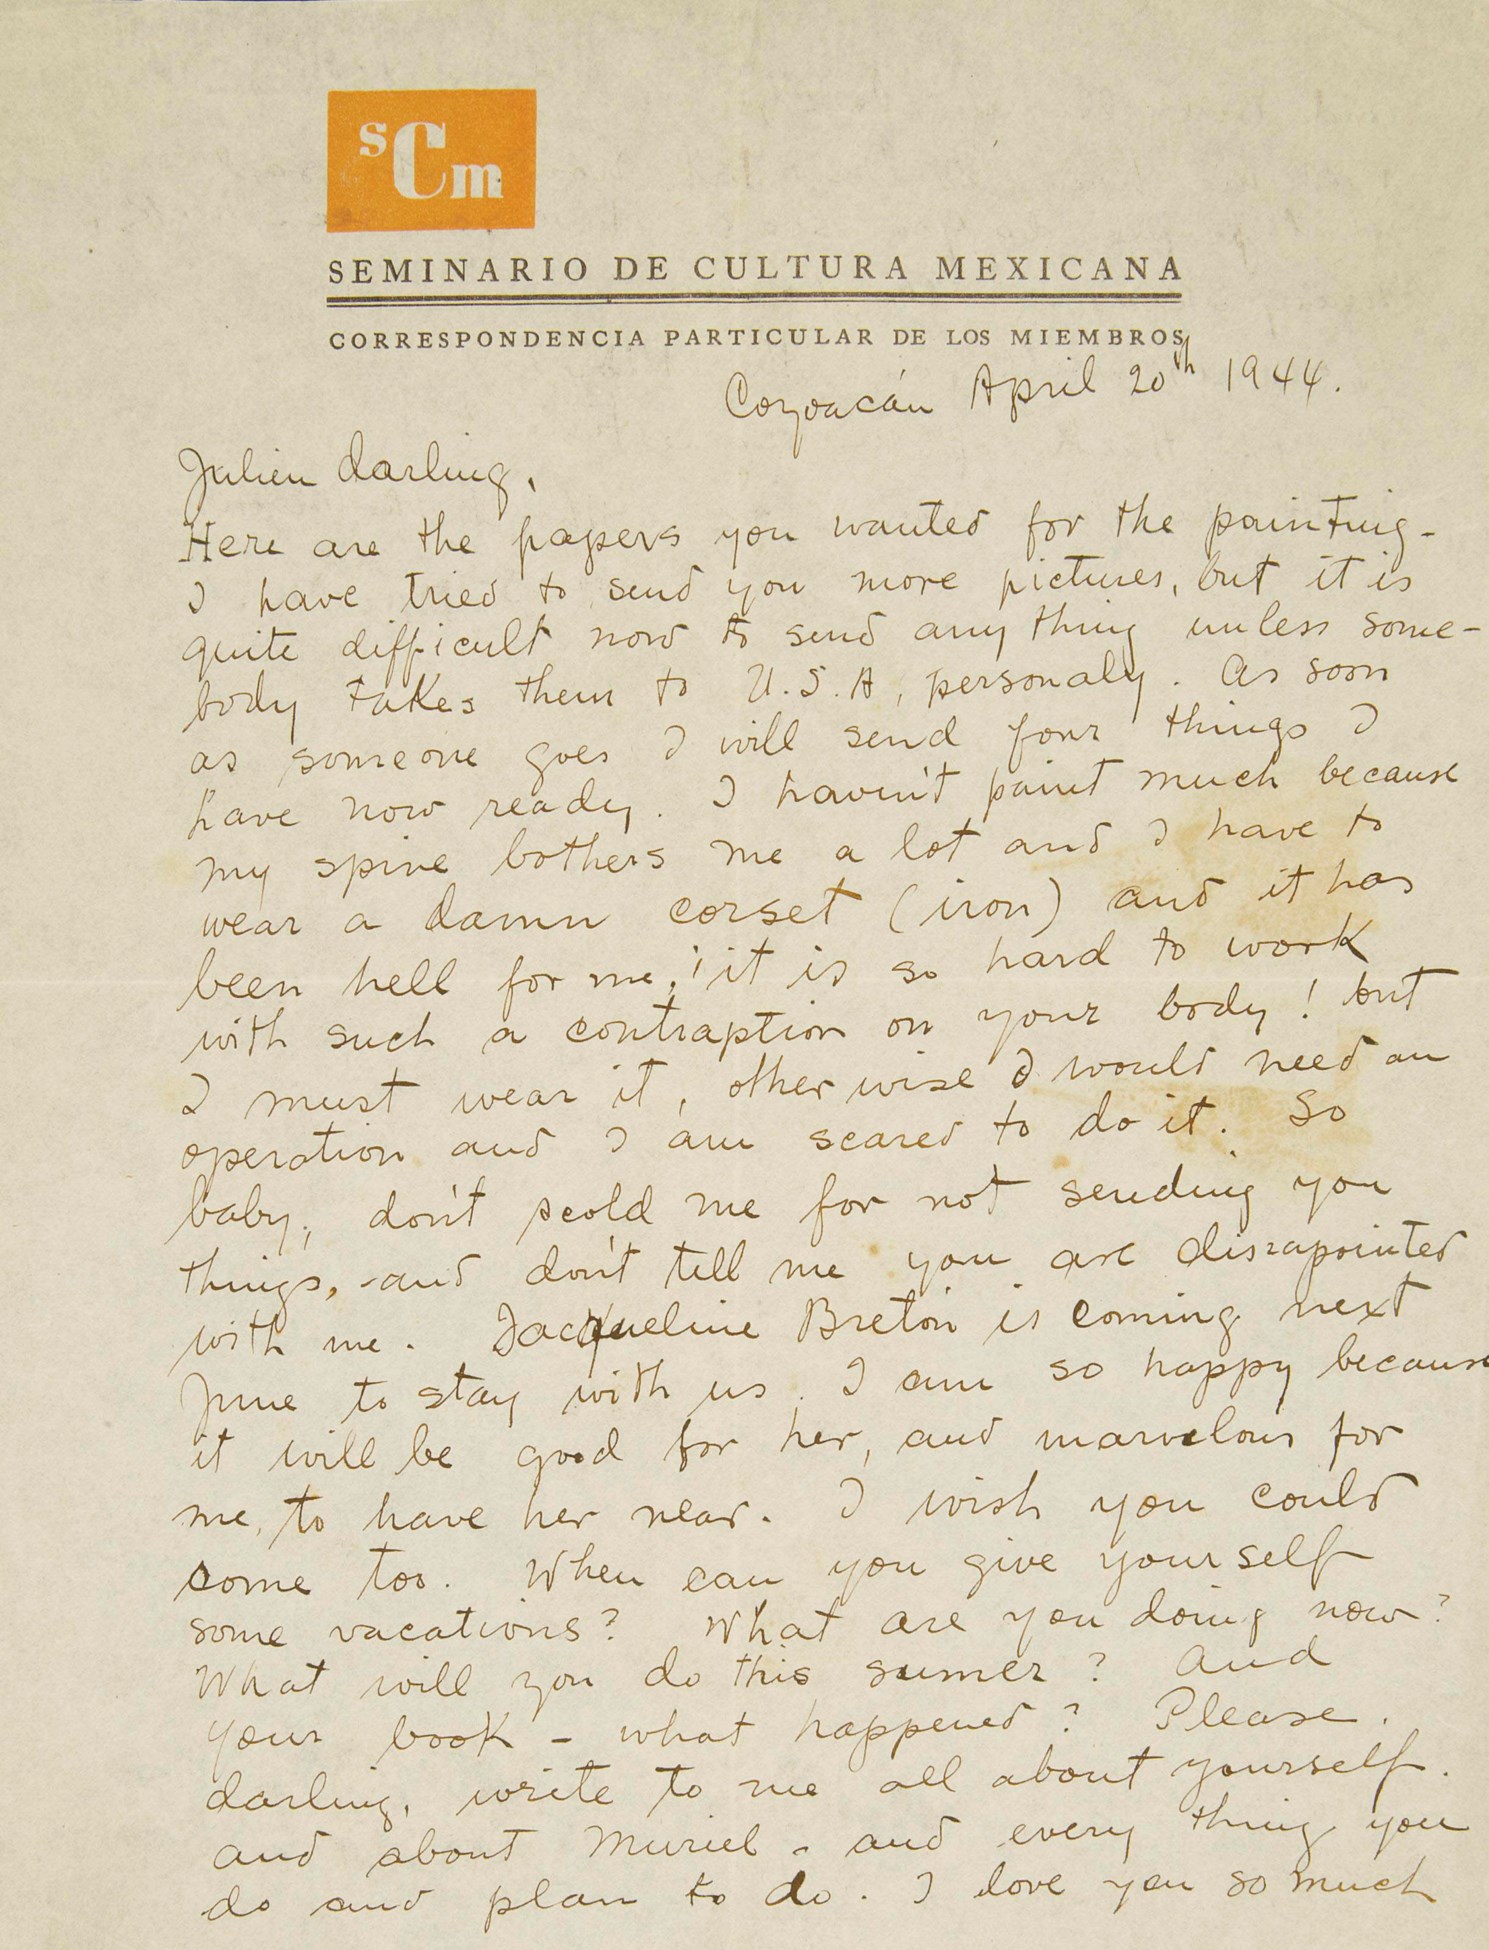 sCm
SEMINARIO DE CULTURA MEXICANA
CORRESPONDENCIA PARTICULAR DE LOS MIEMBROS
Coyoacán April 20th 1944.
Julien darling,
Here are the papers you wanted for the painting-
I have tried to send you more pictures, but it is
quite difficult now to send any thing unless some-
body takes them to U.S.A, personaly. As soon
as someone goes I will send four things I
have now ready. I haven't paint much because
my spine bothers me a lot and I have to
wear a damn corset (iron) and it has
been hell for me, it is so hard to work
with such a contraption on your body! but
I must wear it, other wise I would need an
operation and I am scared to do it. So
baby, don't scold me for not sending you
things, -and don't tell me you are dissapointed
with me. Jacqueline Breton is coming next
June to stay with us. I am so happy because
it will be good for her, and marvelous for
me, to have her near. I wish you could
come too. When can you give your self
some vacations? What are you doing now?
What will you do this sumer? And
your book - what happened? Please.
darling, write to me all about yourself.
and about Muriel - and every thing you
do and plan to do. I love you so much